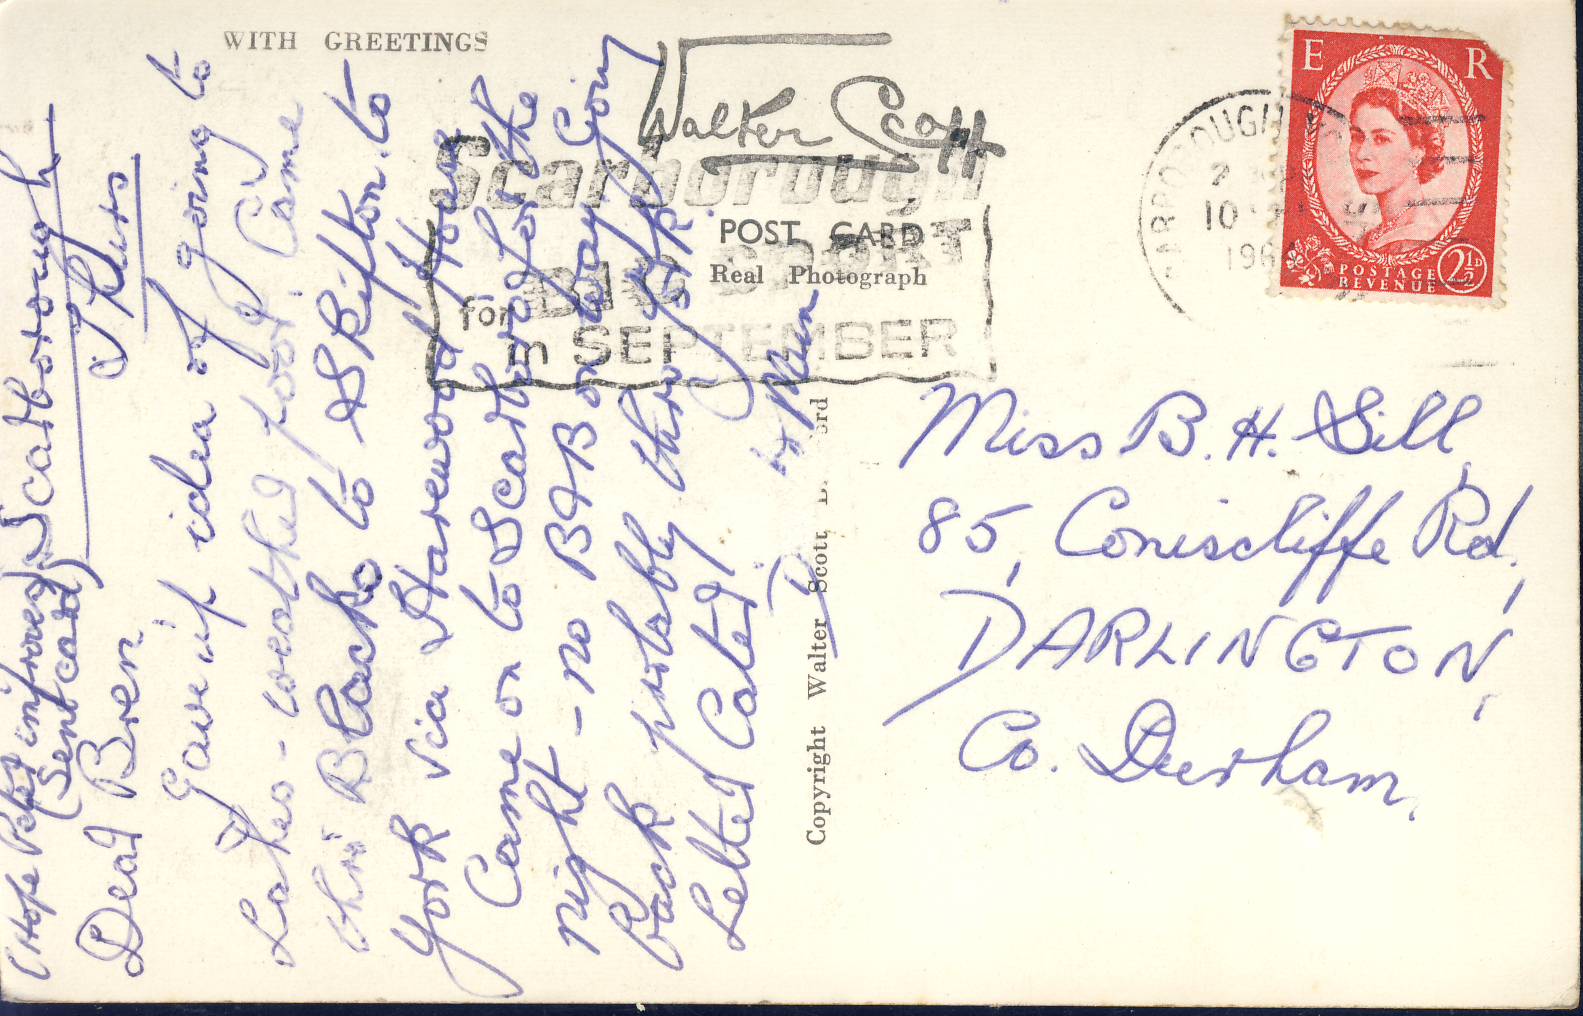 WITH GREETINGS
Walter Scott
Scarborough
for BIG SPORT
in SEPTEMBER
POST CARD
Real Photograph
SCARBOROUGH
10
196
E R
POSTAGE
REVENUE
2½D
Copyright Walter Scott, B ord
Scarborough
Thurs
(Hope Peter improves)
(Sent card)
Dear Bren,
Gave up idea of going to
Lakes - weather poor. Came
thro' Blacko to Skipton to
York via Harewood House
Came on to Scarbro for the
night - no B&B on way. Going
back probably thro' York.
Letter later
Mum
Miss B. H. Sill,
85, Coniscliffe Rd,
DARLINGTON,
Co. Durham.